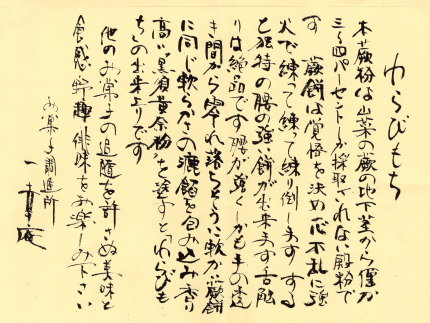 わらびもち
本蕨粉は山菜の蕨の地下茎から僅か
三〜四パーセントしか採取されない澱粉で
す 蕨餅は覚悟を決め一心不乱に強
火で練って練って練り倒します する
と独特の腰の強い餅が出来ます 舌触
りは絶品です 腰が強くしかも手の透
き間から零れ落ちそうに軟か 蕨餅
に同じ軟らかさの漉餡を包み込み香り
高い"黒須黄奈粉"を塗すと「わらびも
ち」の出来上りです
他のお菓子の追随を許さぬ美味と
食感 野趣 俳味をお楽しみ下さい
お菓子調進所
一幸庵